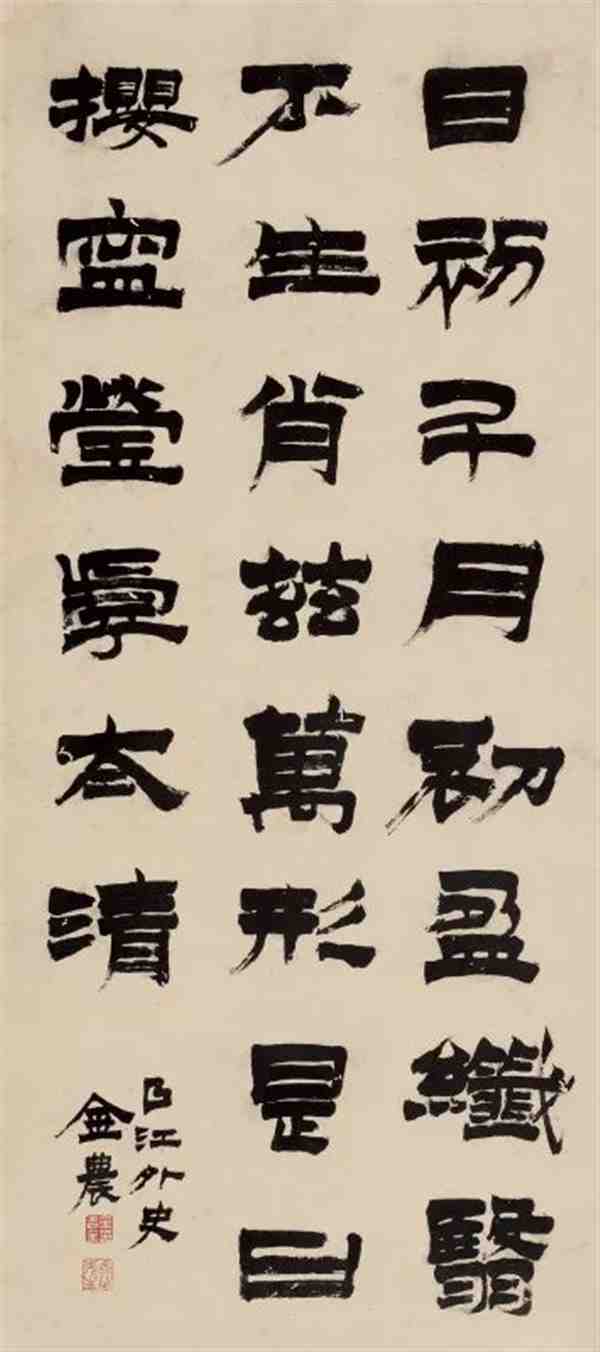 日初升月初盈纖翳
不生肖茲萬形是曰
攖寍瑩虖太清
曲江外史
金農